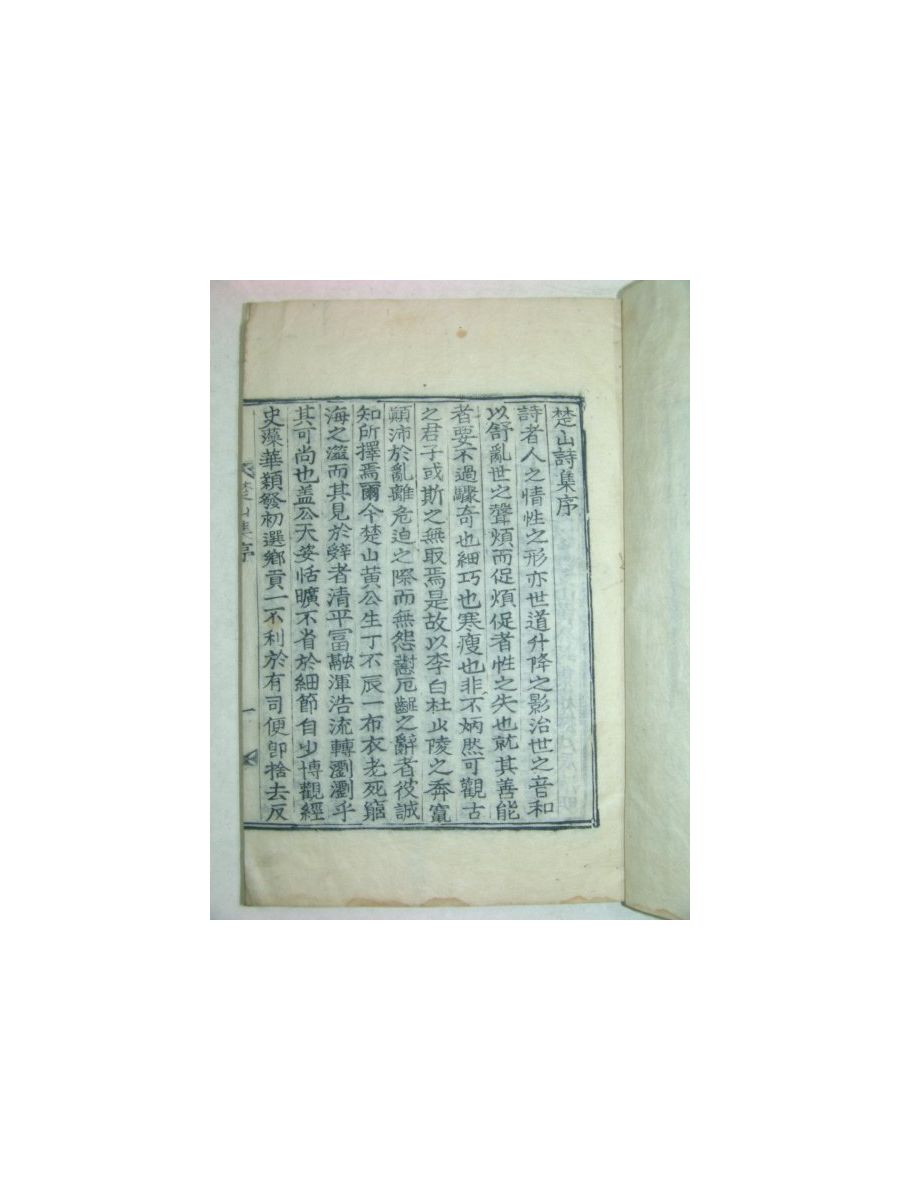 楚山詩集序
詩者人之情性之形亦世道升降之影治世之音和
以舒亂世之聲煩而促煩促者性之失也就其善能
者要不過驟奇也細巧也寒瘦也非不炳然可觀古
之君子或斯之無取焉是故以李白杜少陵之奔竄
顚沛於亂離危迫之際而無怨懟厄齪之辭者彼誠
知所擇焉爾今楚山黃公生丁不辰一布衣老死窮
海之濱而其見於辭者清平冨融渾浩流轉瀏瀏乎
其可尚也盖公天姿恬曠不省於細節自少博觀經
史藻華穎發初選鄉貢一不利於有司便卽捨去反
楚山集序
一